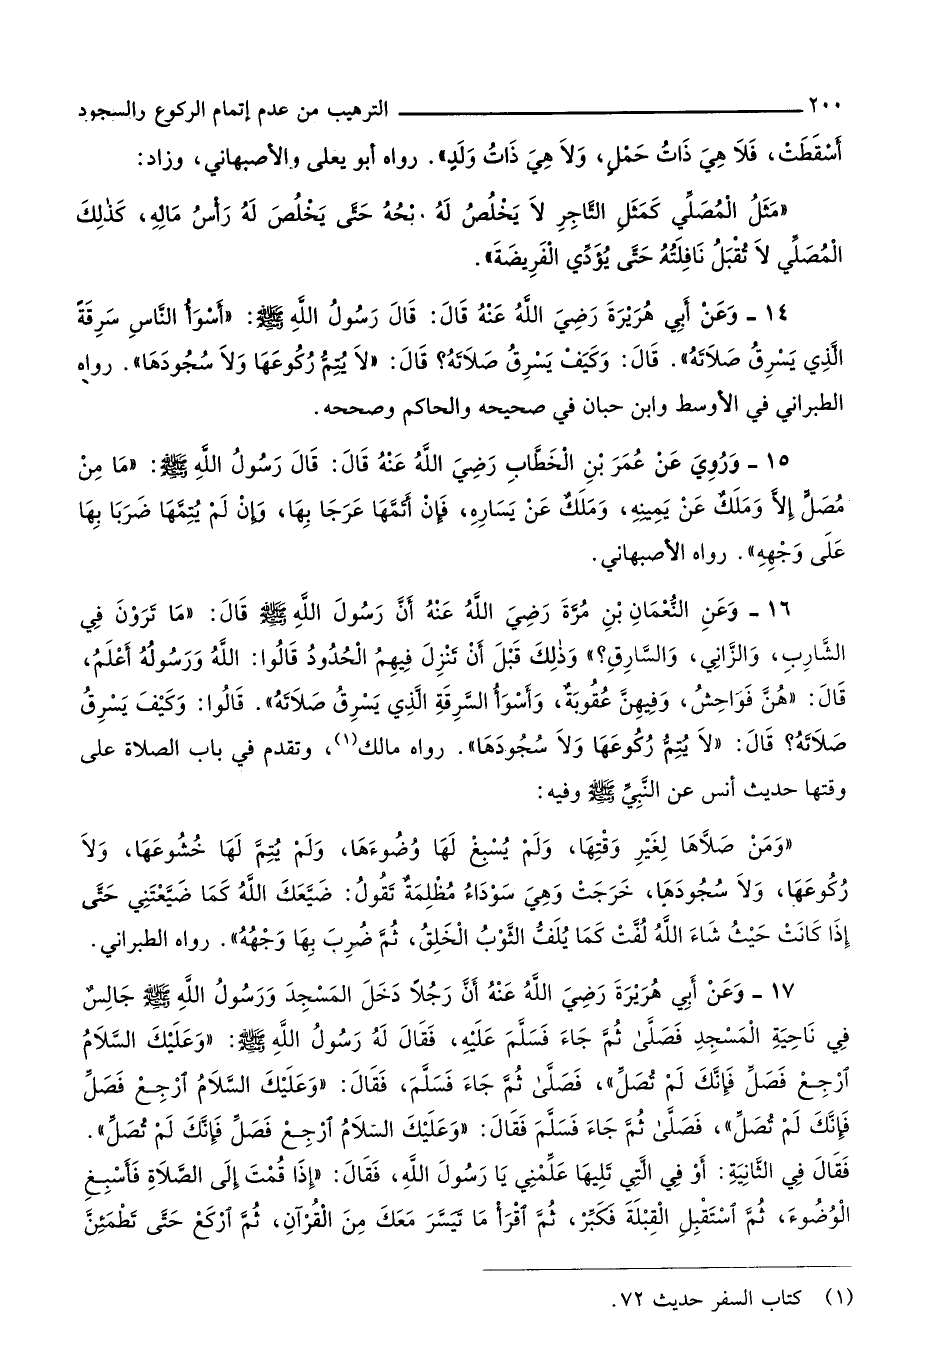 ٢٠٠ الترهيب من عدم إتمام الركوع والسجود
أَسْقَطَتْ، فَلاَ هِيَ ذَاتُ حَمْلٍ، وَلاَ هِيَ ذَاتُ وَلَدٍ». رواه أبو يعلى والأصبهاني، وزاد:
«مَثَلُ الْمُصَلِّي كَمَثَلِ التَّاجِرِ لاَ يَخْلُصُ لَهُ بْحُهُ حَتَّى يَخْلُصَ لَهُ رَأْسُ مَالِهِ، كَذٰلِكَ
الْمُصَلِّي لاَ تُقْبَلُ نَافِلَتُهُ حَتَّى يُؤَدِّي الْفَرِيضَةَ».
١٤ - وَعَنْ أَبِي هُرَيْرَةَ رَضِيَ اللَّهُ عَنْهُ قَالَ: قَالَ رَسُولُ اللَّهِ ﷺ: «أَسْوَأُ النَّاسِ سَرِقَةً
الَّذِي يَسْرِقُ صَلاَتَهُ». قَالَ: وَكَيَفْ يَسْرِقُ صَلاَتَهُ؟ قَالَ: «لاَ يُتِمُّ رُكُوعَهَا وَلاَ سُجُودَهَا». رواه
الطبراني في الأوسط وابن حبان في صحيحه والحاكم وصححه.
١٥ - وَرُوِيَ عَنْ عُمَرَ بْنِ الْخَطَّابِ رَضِيَ اللَّهُ عَنْهُ قَالَ: قَالَ رَسُولُ اللَّهِ ﷺ: «مَا مِنْ
مُصَلٍّ إِلاَّ وَمَلَكٌ عَنْ يَمِينِهِ، وَمَلَكٌ عَنْ يَسَارِهِ، فَإِنْ أَتَمَّهَا عَرَجَا بِهَا، وَإِنْ لَمْ يُتِمَّهَا ضَرَبَا بِهَا
عَلَى وَجْهِهِ». رواه الأصبهاني.
١٦ - وَعَنِ النُّعْمَانِ بْنِ مُرَّةَ رَضِيَ اللَّهُ عَنْهُ أَنَّ رَسُولَ اللَّهِ ﷺ قَالَ: «مَا تَرَوْنَ فِي
الشَّارِبِ، وَالزَّانِي، وَالسَّارِقِ؟» وَذٰلِكَ قَبْلَ أَنْ تَنْزِلَ فِيهِمُ الْحُدُودُ قَالُوا: اللَّهُ وَرَسُولُهُ أَعْلَمُ،
قَالَ: «هُنَّ فَوَاحِشُ، وَفِيهِنَّ عُقُوبَةٌ، وَأَسْوَأُ السَّرِقَةِ الَّذِي يَسْرِقُ صَلاَتَهُ». قَالُوا: وَكَيْفَ يَسْرِقُ
صَلاَتَهُ؟ قَالَ: «لاَ يُتِمُّ رُكُوعَهَا وَلاَ سُجُودَهَا». رواه مالك(١)، وتقدم في باب الصلاة على
وقتها حديث أنس عن النَّبِيِّ ﷺ وفيه:
«وَمَنْ صَلاَّهَا لِغَيْرِ وَقْتِهَا، وَلَمْ يُسْبِغْ لَهَا وُضُوءَهَا، وَلَمْ يُتِمَّ لَهَا خُشُوعَهَا، وَلاَ
رُكُوعَهَا، وَلاَ سُجُودَهَا، خَرَجَتْ وَهِيَ سَوْدَاءُ مُظْلِمَةٌ تَقُولُ: ضَيَّعَكَ اللَّهُ كَمَا ضَيَّعْتَنِي حَتَّى
إِذَا كَانَتْ حَيْثُ شَاءَ اللَّهُ لُفَّتْ كَمَا يُلَفُّ الثَّوْبُ الْخَلِقُ، ثُمَّ ضُرِبَ بِهَا وَجْهُهُ». رواه الطبراني.
١٧ - وَعَنْ أَبِي هُرَيْرَةَ رَضِيَ اللَّهُ عَنْهُ أَنَّ رَجُلاً دَخَلَ الْمَسْجِدَ وَرَسُولُ اللَّهِ ﷺ جَالِسٌ
فِي نَاحِيَةِ الْمَسْجِدِ فَصَلَّىٰ ثُمَّ جَاءَ فَسَلَّمَ عَلَيْهِ، فَقَالَ لَهُ رَسُولُ اللَّهِ ﷺ: «وَعَلَيْكَ السَّلاَمُ
ٱرْجِعْ فَصَلِّ فَإِنَّكَ لَمْ تُصَلِّ»، فَصَلَّىٰ ثُمَّ جَاءَ فَسَلَّمَ، فَقَالَ: «وَعَلَيْكَ السَّلاَمُ ٱرْجِعْ فَصَلِّ
فَإِنَّكَ لَمْ تُصَلِّ»، فَصَلَّىٰ ثُمَّ جَاءَ فَسَلَّمَ فَقَالَ: «وَعَلَيْكَ السَلاَمُ ٱرْجِعْ فَصَلِّ فَإِنَّكَ لَمْ تُصَلِّ».
فَقَالَ فِي الثَّانِيَةِ: أَوْ فِي الَّتِي تَلِيهَا عَلِّمْنِي يَا رَسُولَ اللَّهِ، فَقَالَ: «إِذَا قُمْتَ إِلَى الصَّلاَةِ فَأَسْبِغِ
الْوُضُوءَ، ثُمَّ ٱسْتَقْبِلِ الْقِبْلَةَ فَكَبِّرْ، ثُمَّ ٱقْرَأْ مَا تَيَسَّرَ مَعَكَ مِنَ الْقُرْآنِ، ثُمَّ ٱرْكَعْ حَتَّى تَطْمَئِنَّ
(١) كتاب السفر حديث ٧٢.